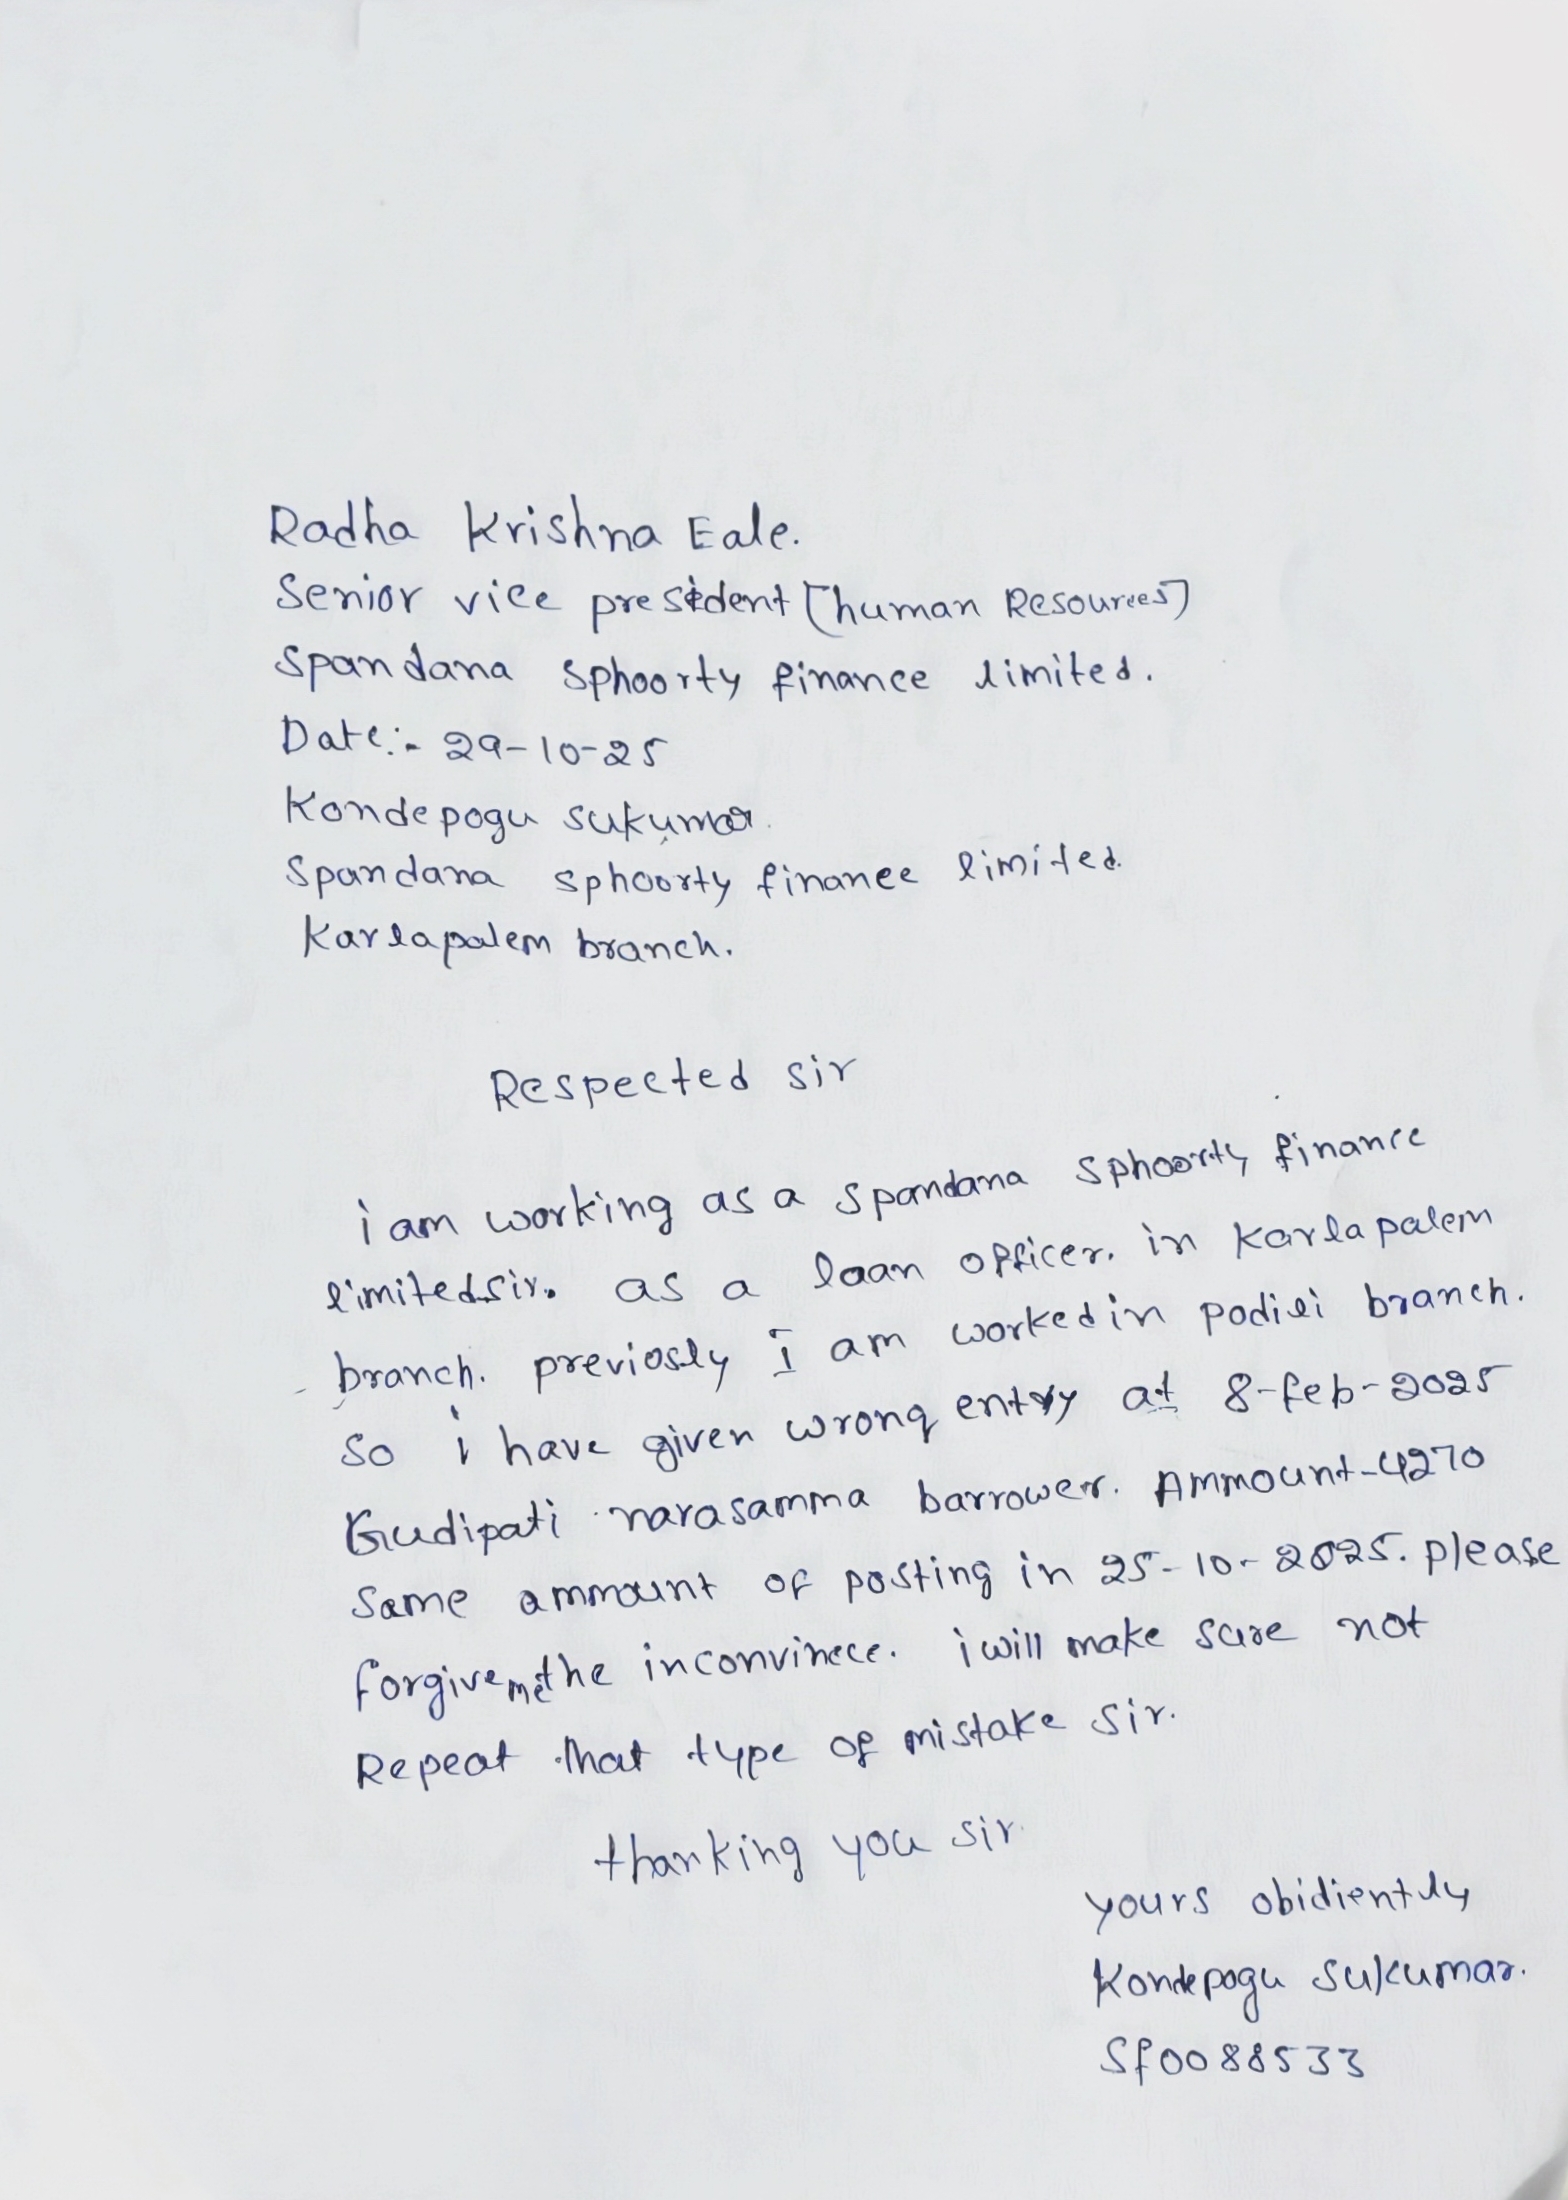 Radha Krishna Eale.
Senior vice president [human Resources]
Spandana sphoorty finance limited.
Date:- 29-10-25
Kondepogu sukumar.
Spandana sphoorty finance limited.
Karlapalem branch.
Respected sir
i am working as a spandana sphoorty finance
limited sir. as a loan officer. in Karlapalem
branch. previosly I am worked in podili branch.
So i have given wrong entry at 8-feb-2025
Gudipati narasamma barrower. Ammount-4270
Same ammount of posting in 25-10-2025. please
forgive me the inconvinece. i will make sure not
Repeat that type of mistake sir.
thanking you sir.
yours obidiently
Kondepogu sukumar.
Sf0088533